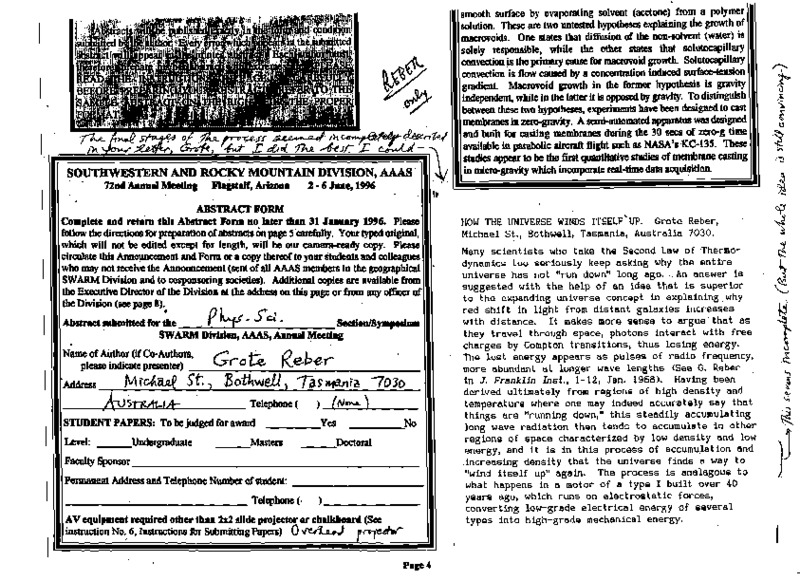 Abstracts will be published exactly in the form and condition
submitted by the author. Every error which appears in the submitted
REBER
only
The final stages of the process seemed incompletely described
in your letter, Grote, but I did the best I could
SOUTHWESTERN AND ROCKY MOUNTAIN DIVISION, AAAS
72nd Annual Meeting Flagstaff, Arizona 2 - 6 June, 1996
ABSTRACT FORM
Complete and return this Abstract Form no later than 31 January 1996. Please
follow the directions for preparation of abstracts on page 5 carefully. Your typed original,
which will not be edited except for length, will be our camera-ready copy. Please
circulate this Announcement and Form or a copy thereof to your students and colleagues
who may not receive the Announcement (sent of all AAAS members in the geographical
SWARM Division and to cosponsoring societies). Additional copies are available from
the Executive Director of the Division at the address on this page or from any officer of
the Division (see page 8).
Abstract submitted for the Phys. Sci. Section/Symposium
SWARM Division, AAAS, Annual Meeting
Name of Author (if Co-Authors,
please indicate presenter) Grote Reber
Address Michael St., Bothwell, Tasmania 7030
AUSTRALIA Telephone ( ) (None)
STUDENT PAPERS: To be judged for award Yes No
Level: Undergraduate Masters Doctoral
Faculty Sponsor
Permanent Address and Telephone Number of student:
Telephone ( )
AV equipment required other than 2x2 slide projector or chalkboard (See
instruction No. 6, Instructions for Submitting Papers) Overhead projector
Page 4
smooth surface by evaporating solvent (acetone) from a polymer
solution. These are two untested hypotheses explaining the growth of
macrovoids. One states that diffusion of the non-solvent (water) is
solely responsible, while the other states that solutocapillary
convection is the primary cause for macrovoid growth. Solutocapillary
convection is flow caused by a concentration induced surface-tension
gradient. Macrovoid growth in the former hypothesis is gravity
independent, while in the latter it is opposed by gravity. To distinguish
between these two hypotheses, experiments have been designed to cast
membranes in zero-gravity. A semi-automated apparatus was designed
and built for casting membranes during the 30 secs of zero-g time
available in parabolic aircraft flight such as NASA's KC-135. These
studies appear to be the first quantitative studies of membrane casting
in micro-gravity which incorporate real-time data acquisition.
HOW THE UNIVERSE WINDS ITSELF UP. Grote Reber,
Michael St., Bothwell, Tasmania, Australia 7030.
Many scientists who take the Second Law of Thermo-
dynamics too seriously keep asking why the entire
universe has not "run down" long ago. An answer is
suggested with the help of an idea that is superior
to the expanding universe concept in explaining why
red shift in light from distant galaxies increases
with distance. It makes more sense to argue that as
they travel through space, photons interact with free
charges by Compton transitions, thus losing energy.
The lost energy appears as pulses of radio frequency,
more abundant at longer wave lengths (See G. Reber
in J. Franklin Inst., 1-12, Jan. 1968). Having been
derived ultimately from regions of high density and
temperature where one may indeed accurately say that
things are "running down," this steadily accumulating
long wave radiation then tends to accumulate in other
regions of space characterized by low density and low
energy, and it is in this process of accumulation and
increasing density that the universe finds a way to
"wind itself up" again. The process is analogous to
what happens in a motor of a type I built over 40
years ago, which runs on electrostatic forces,
converting low-grade electrical energy of several
types into high-grade mechanical energy.
This seems incomplete. (But the whole idea is still convincing.)